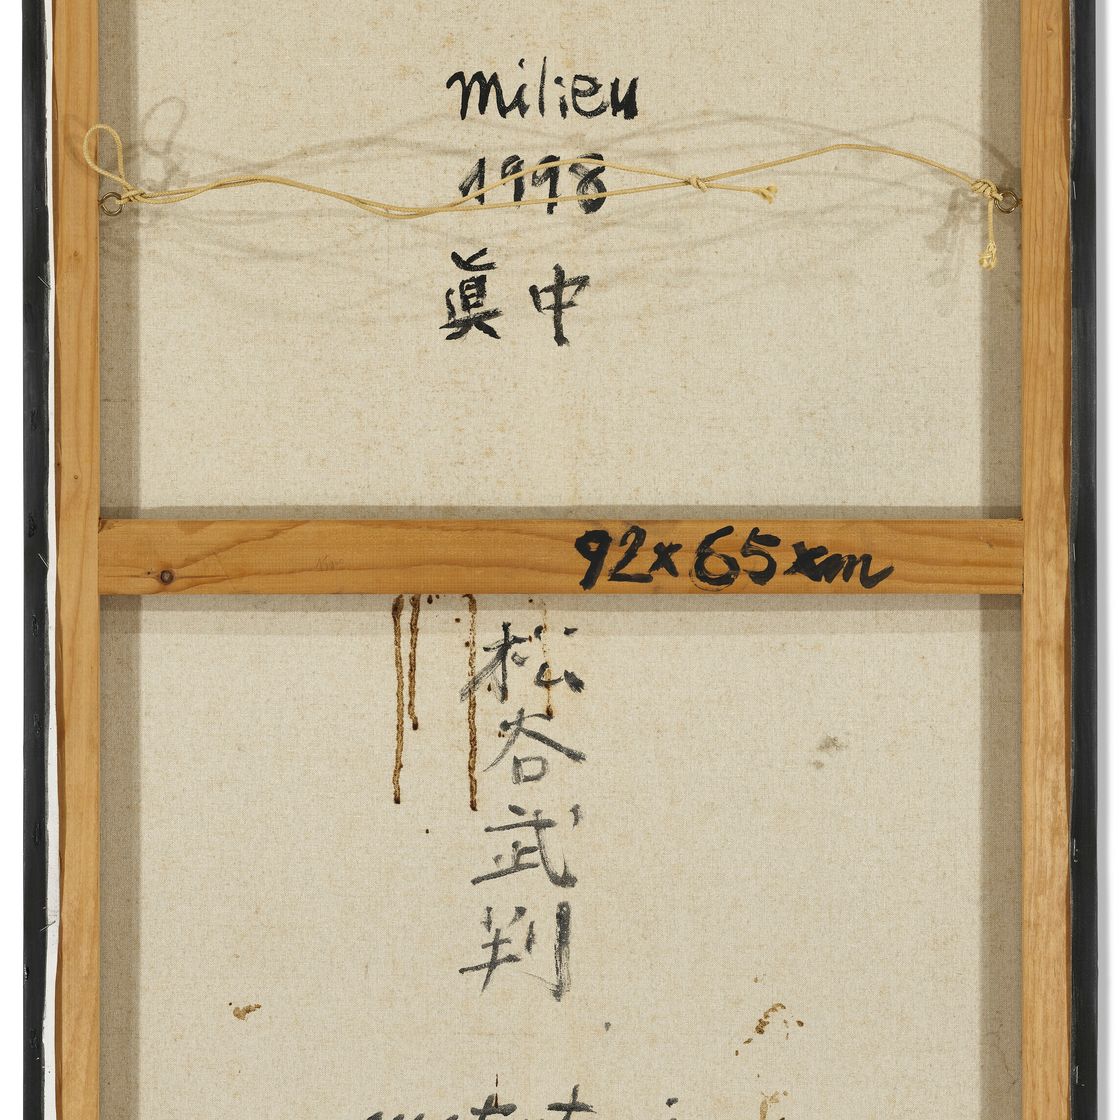 milieu
1998
眞中
92x65xm
松
谷
武
判